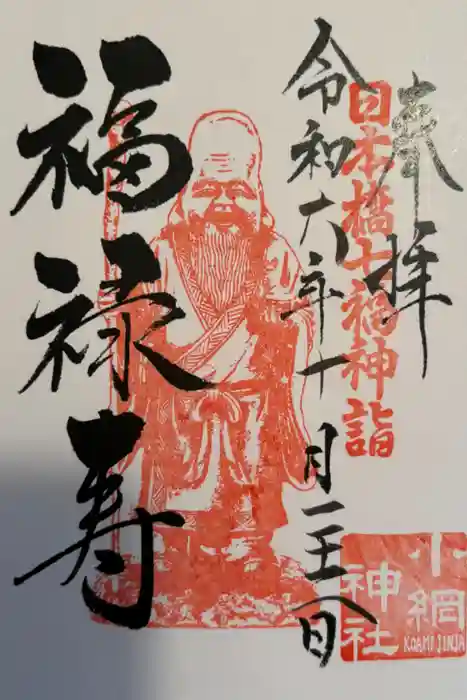 奉拝
日本橋七福神詣
令和六年十一月二十八日
福禄寿
小網
神社
KOAMI JINJA